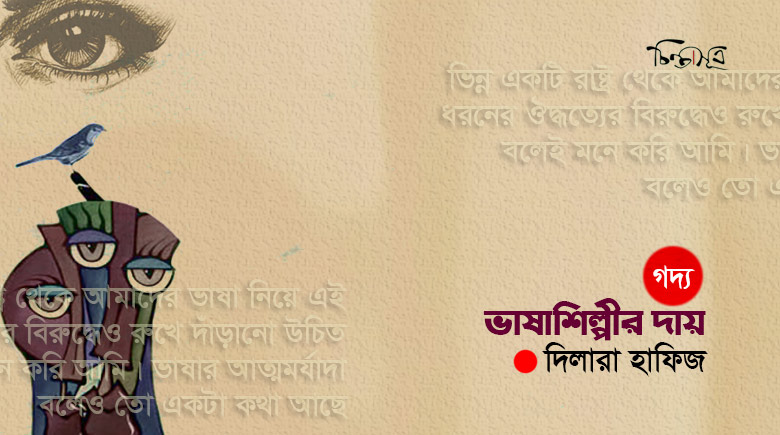 চিন্তাসূত্র
ভিন্ন একটি রাষ্ট্র থেকে আমাদের
ধরনের ঔদ্ধত্যের বিরুদ্ধেও রুখে
বলেই মনে করি আমি। ভা
বলেও তো এ
গদ্য
ভাষাশিল্পীর দায়
দিলারা হাফিজ
থেকে আমাদের ভাষা নিয়ে এই
র বিরুদ্ধেও রুখে দাঁড়ানো উচিত
ন করি আমি। ভাষার আত্মমর্যাদা
বলেও তো একটা কথা আছে